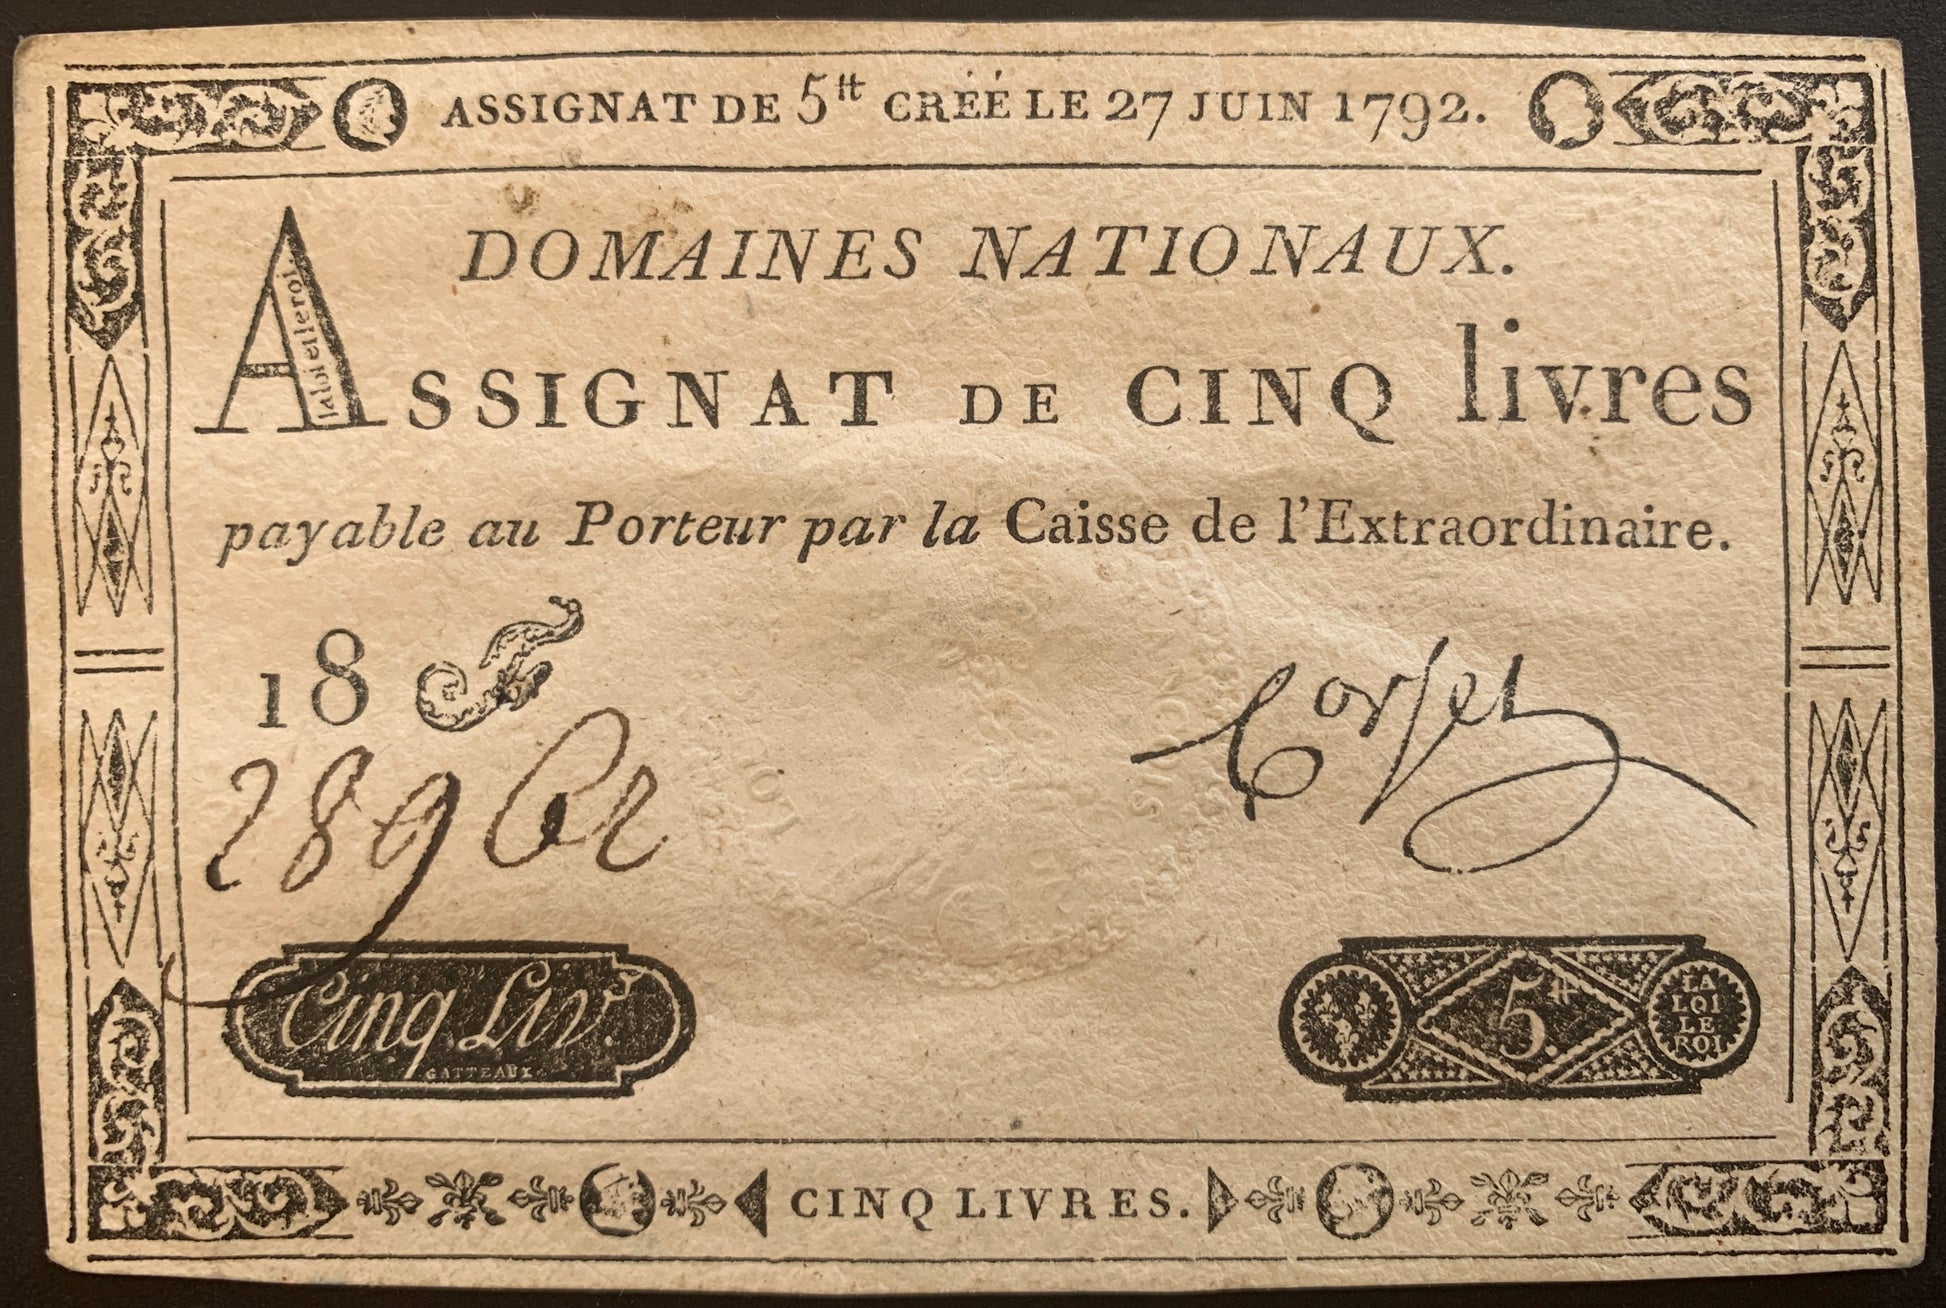 ASSIGNAT DE 5tt CRÉÉ LE 27 JUIN 1792.
DOMAINES NATIONAUX.
ASSIGNAT DE CINQ livres
la loi et le roi.
payable au Porteur par la Caisse de l'Extraordinaire.
18
289
Corsel
Cinq Livs.
GATTEAUX
5tt.
LA
LOI
LE
ROI
CINQ LIVRES.